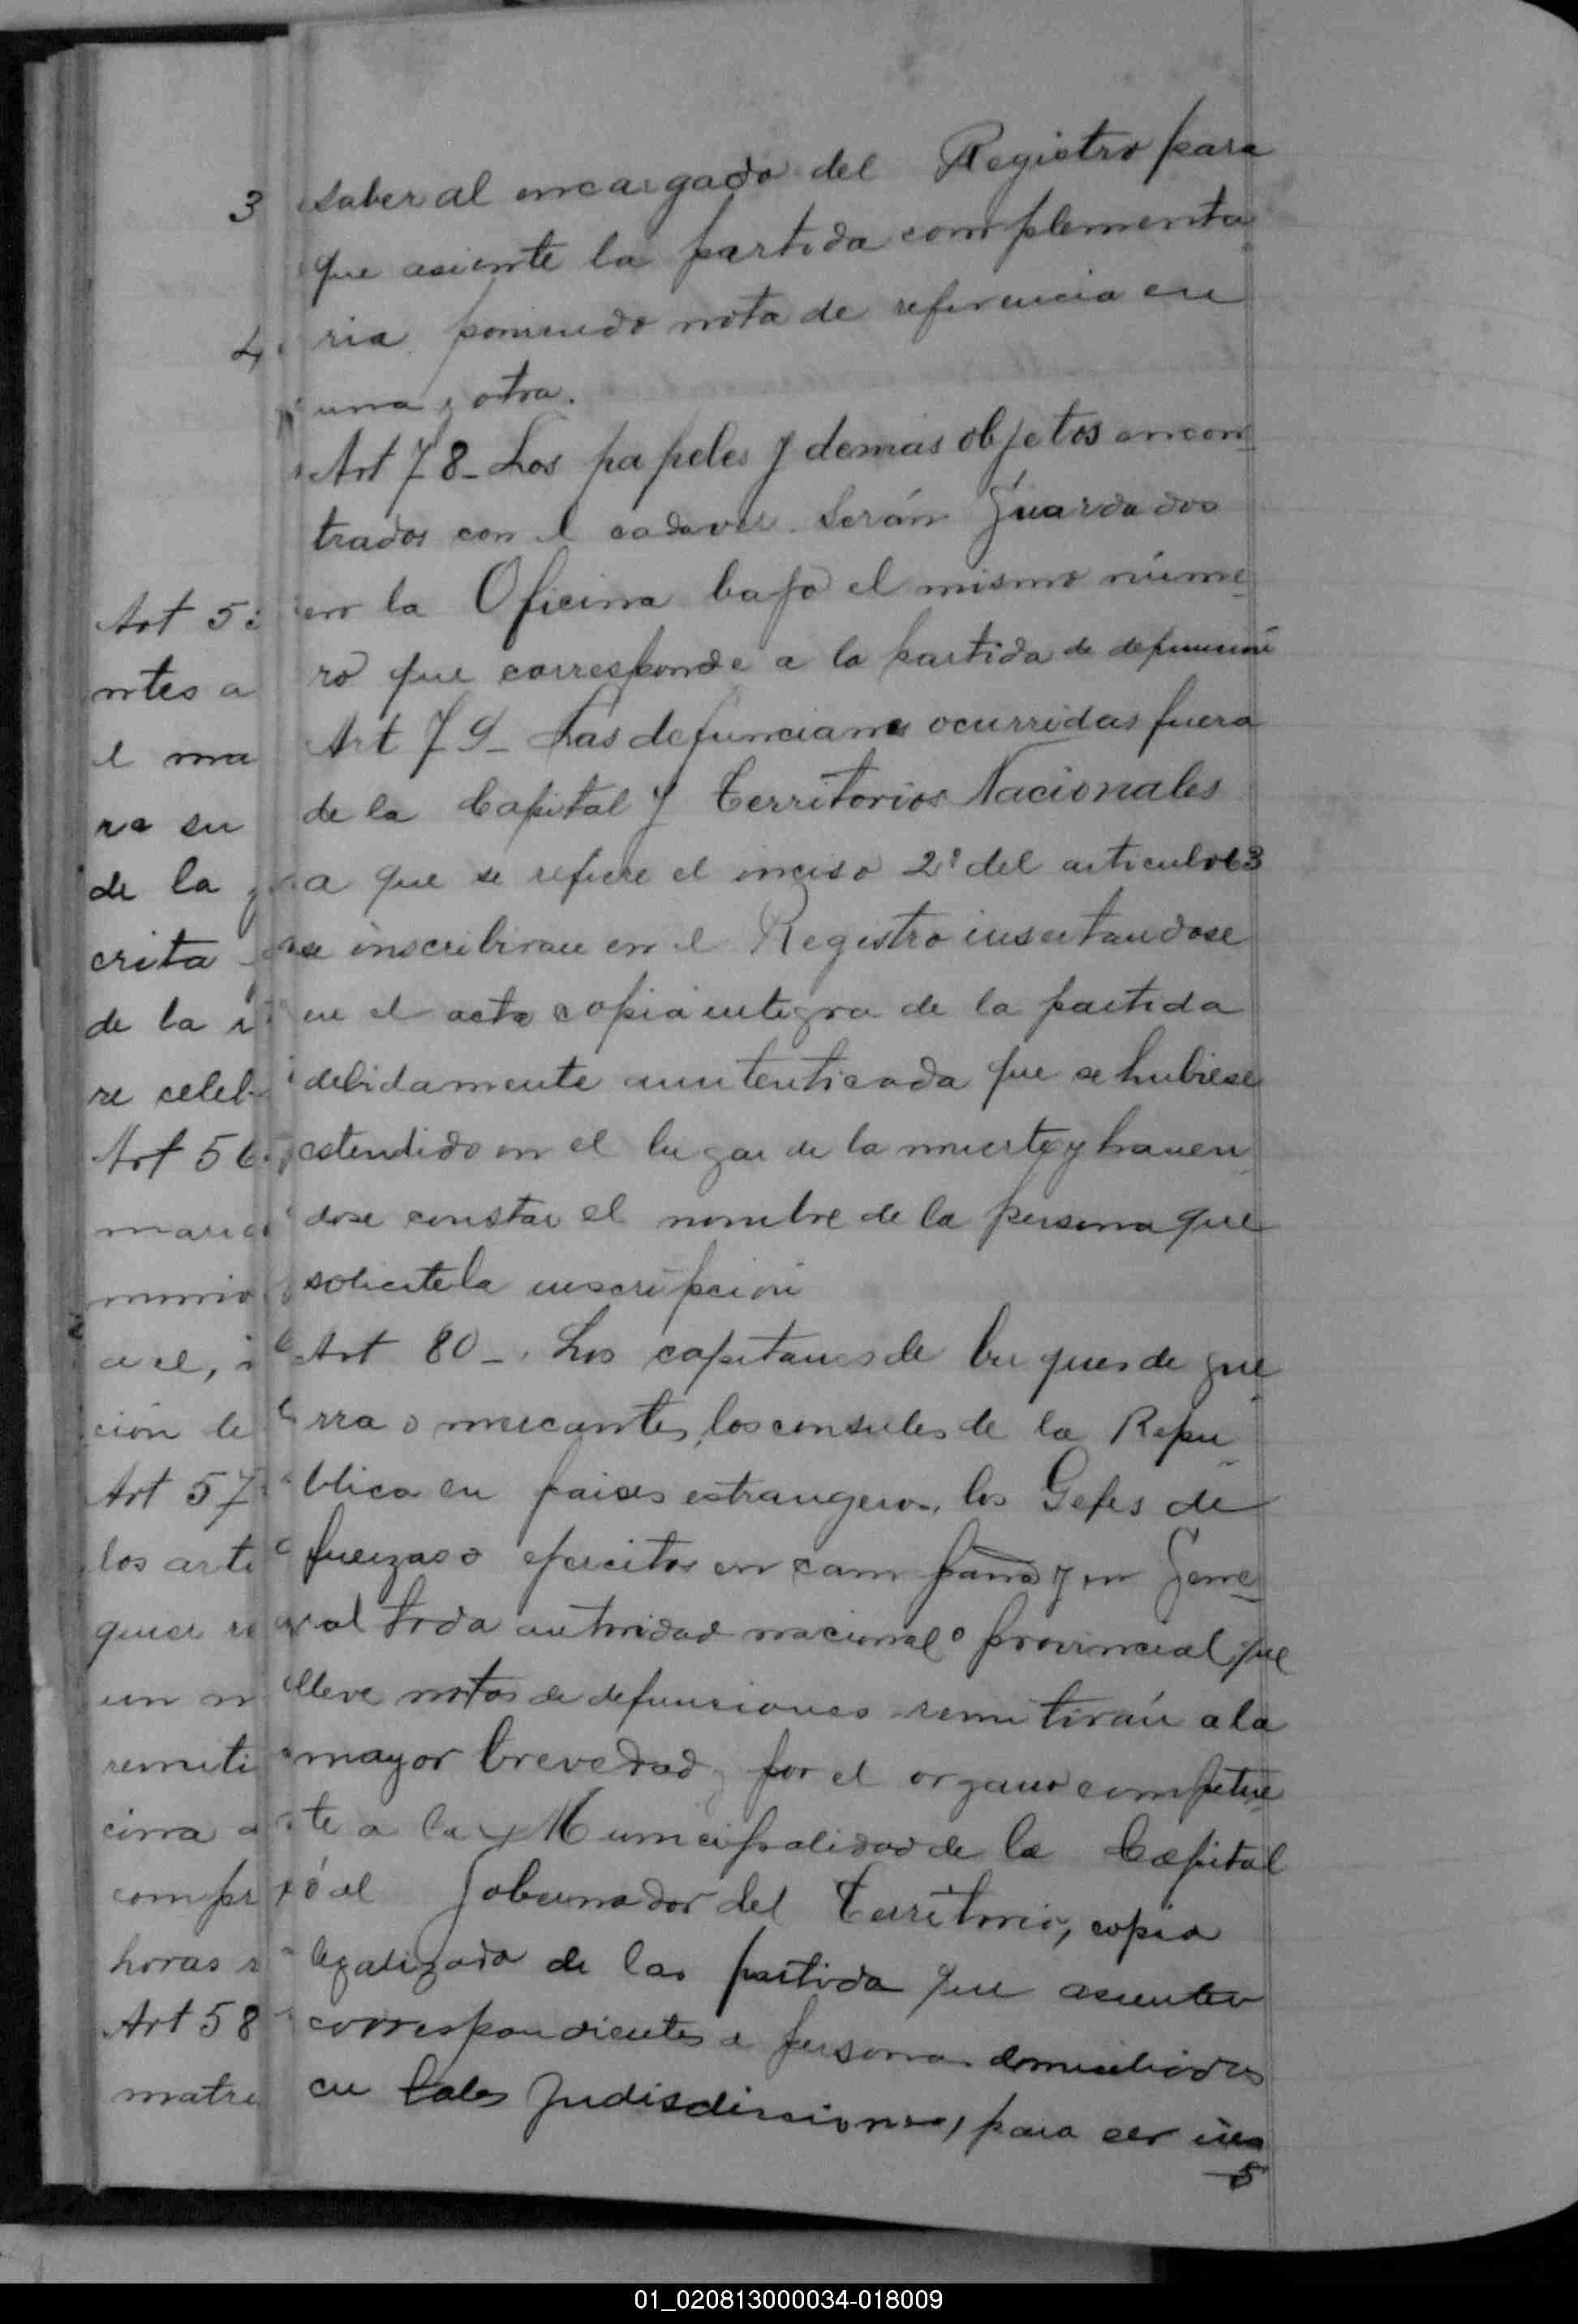 3
4
Art 5
ntes a
l ma
re su
de la
crita
de la
re celeb
Art 56
mari
a el,
ción de
Art 57
los arti
quier
un
remiti
cina
compr
horas
Art 58
matri
saber al encargado del Registro para
que asiente la partida complementa
ria poniendo nota de referencia en
una y otra.
Art 78_ Los papeles y demás objetos encon_
trados con el cadaver. Serán Guardados
en la Oficina bajo el mismo núme_
ro que corresponde a la partida de defunción
Art 79_ Las defunciones ocurridas fuera
de la Capital y Territorios Nacionales
a que se refiere el inciso 2º del articulo 63
se inscribiran en el Registro insertandose
en el acta copia integra de la partida
debidamente auntenticada que se hubiese
estendido en el lugar de la muerte y hacien_
dose constar el nombre de la persona que
solicite la inscripción
Art 80_. Los capitanes de buques de gue_
rra o mercantes, los consules de la Repu_
blica en paises estrangeros, los Gefes de
fuerzas o ejercitos en campaña y en Gene_
ral toda autoridad nacional o provincial que
lleve notas de defunciones remitirán a la
mayor brevedad, por el organo competen_
te a la Municipalidad de la Capital
ó al Gobernador del Territorio, copia
legalizada de las partida que asienten
correspondientes a personas domiciliadas
en tales Judisdicciones, para ser ins
5
01_020813000034-018009